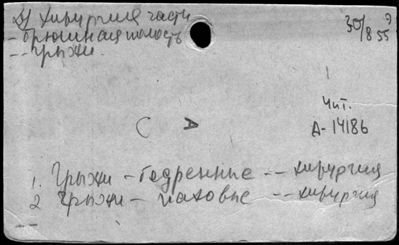 2) хирургия части 30/8 55
- брюшная полость
-- грыжи.
Чит.
А-14186
С А
1. Грыжи - бедренные -- хирургия
2 Грыжи - паховые -- хирургия